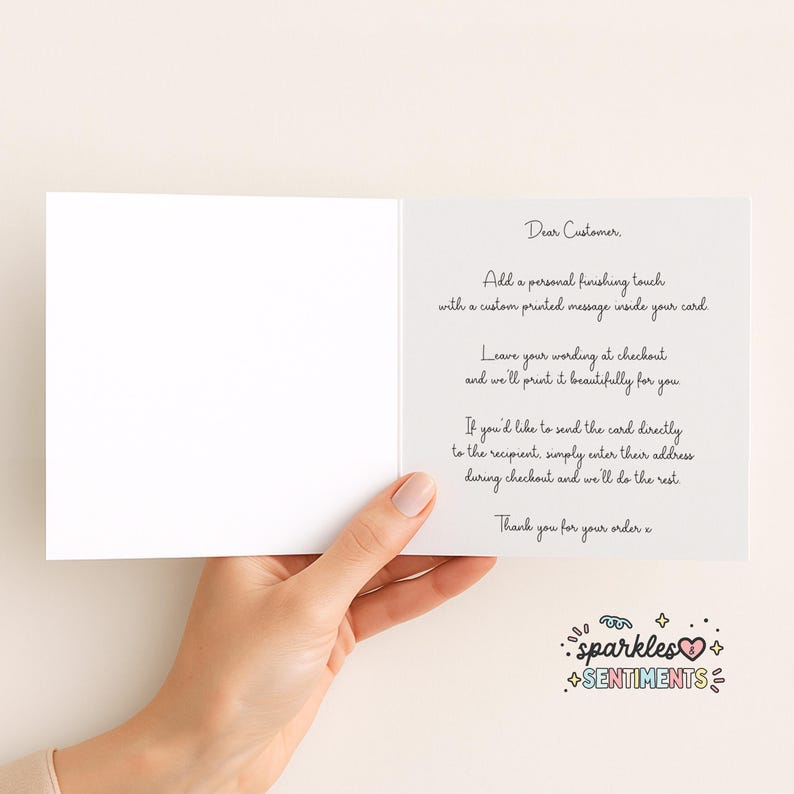 Dear Customer,
Add a personal finishing touch
with a custom printed message inside your card.
Leave your wording at checkout
and we'll print it beautifully for you.
If you'd like to send the card directly
to the recipient, simply enter their address
during checkout and we'll do the rest.
Thank you for your order x
sparkles &
SENTIMENTS